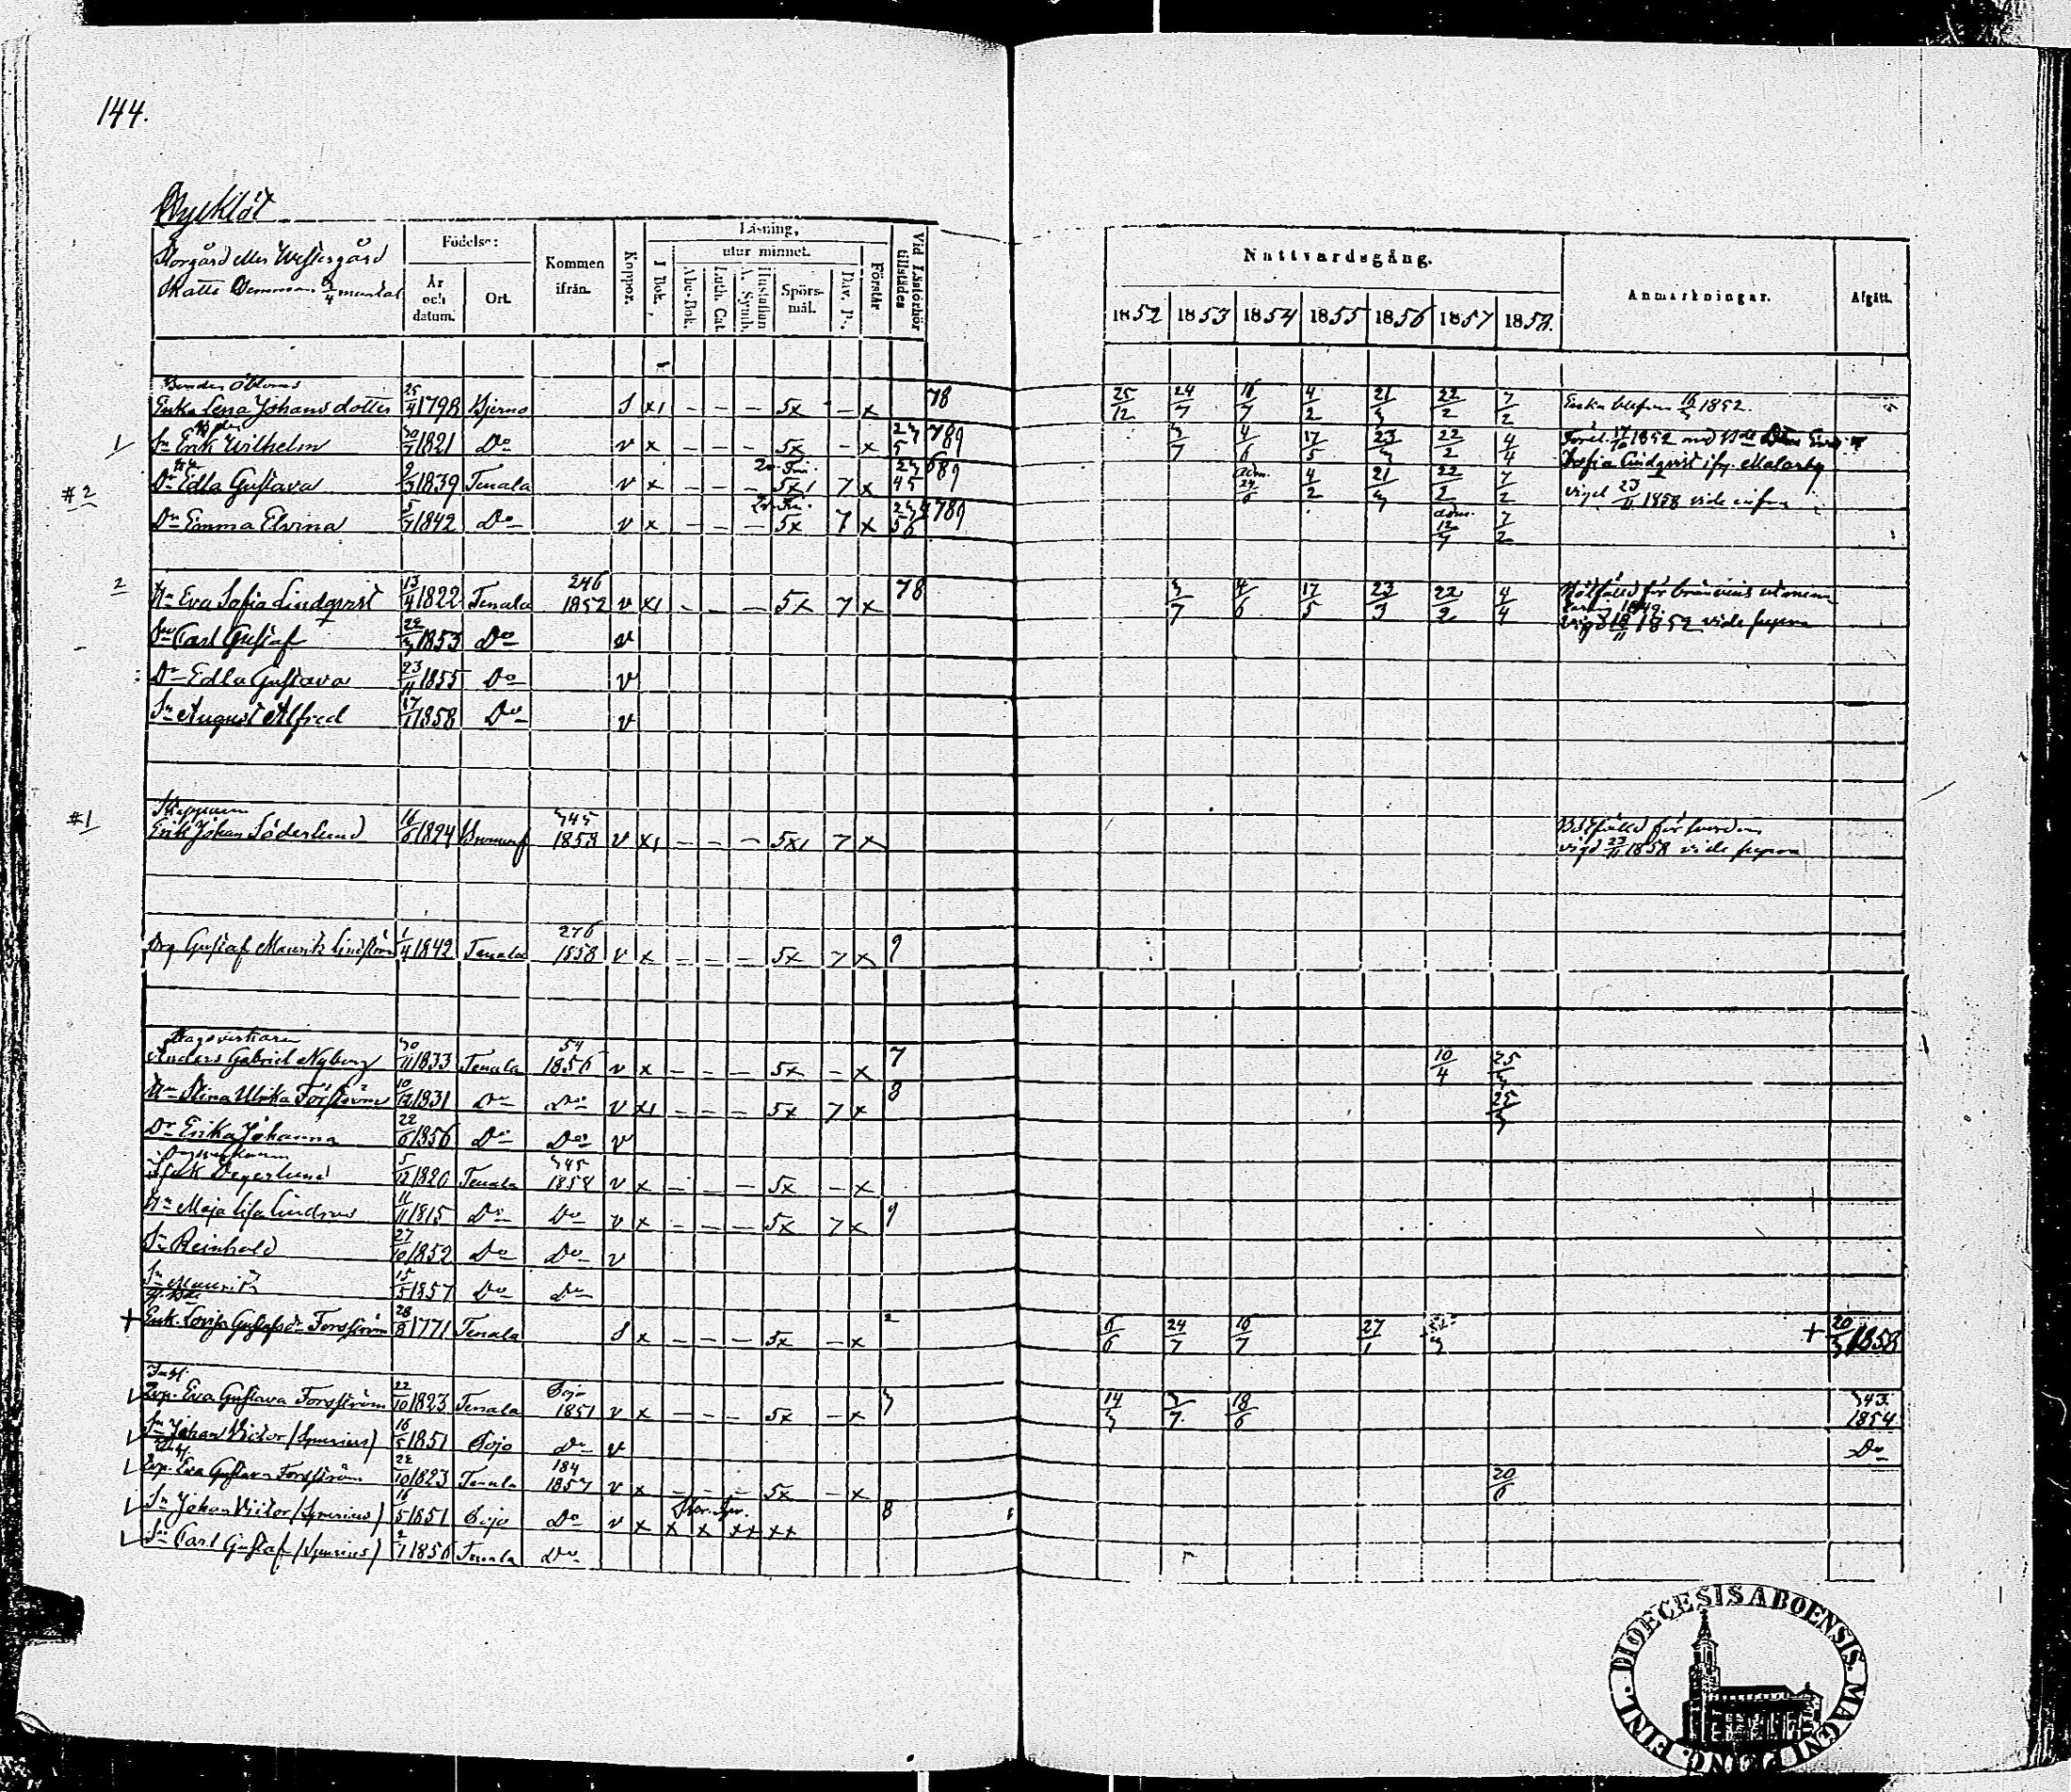 144.
Storgård eller Westergård
Skatte Hemman 3/4 mantal
Födelse:
År och datum.
Ort.
Kommen ifrån.
Koppor.
Läsning,
I Bok,
utur minnet.
Abc-Bok.
Luth. Cat.
Hustaflan A. Symb.
Spörs-mål.
Dav. P.
Förstår
Vid Läsförhör tillstädes
Nattvardsgång.
1852 1853 1854 1855 1856 1857 1858.
Anmärkningar.
Afgått.
Enka Lena Johansdotter 25/4 1798 Bjerno S x1 - - - 5x - x 78 25/12 24/7 16/7 4/2 21/3 22/2 7/2 Enka blefven 1852.
1 Sn Erik Wilhelm 30/7 1821 Do v x - - - 5x - x 789 3/7 4/6 17/5 23/3 22/2 4/4
Sofia Lindqvist ifr. Malarby
#2 Dr Edla Gustava 9/3 1839 Tenala v x - - - 5x1 7 x 689 adm. 24/6 4/2 21/3 22/2 7/2 vigd 23/11 1858 vide infra
Dr Emma Elvina 5/7 1842 Do v x - - - 5x 7 x 789 adm. 12/7 7/2
2 Hu Eva Sofia Lindqvist 13/4 1822 Tenala 246 1852 v x1 - - - 5x 7 x 78 3/7 4/6 17/5 23/3 22/2 4/4
vigd 18/11 1852 vide supra
Sn Carl Gustaf 22/3 1853 Do v
Dr Edla Gustava 23/11 1855 Do v
Sn August Alfred 17/1 1858 Do v
#1 Erik Johan Söderlund 16/6 1824 Bromarf 345 1858 v x1 - - - 5x1 7 x
vigd 23/11 1858 vide supra
Drg Gustaf Maurits Lindström 1/4 1842 Tenala 276 1858 v x - - - 5x 7 x 9
Dagsverkaren
Anders Gabriel Nyberg 30/11 1833 Tenala 54 1856 v x - - - 5x - x 7 10/4 25/3
Hu Stina Ulrika Forsström 10/12 1831 Do Do v x1 - - - 5x 7 x 8 25/3
Dr Erika Johanna 22/6 1856 Do Do v
Isak Degerlund 5/12 1820 Tenala 345 1858 v x - - - 5x - x
Hu Maja Lisa Lindroos 11/11 1815 Do Do v x - - - 5x 7 x 9
Sn Reinhold 27/10 1852 Do Do v
Sn Maurits 15/5 1857 Do Do
+ Enk. Lovisa Gustafsdr Forsström 28/8 1771 Tenala S x - - - 5x - x 2 6/6 24/7 16/7 27/1 + 20/3 1858
Inh.
Lösp. Eva Gustava Forsström 22/10 1823 Tenala Pojo 1851 v x - - - 5x - x 3 14/3 3/7 18/6 343. 1854
Sn Johan Victor (Spurius) 16/5 1851 Pojo Do v Do
Lösp. Eva Gustava Forsström 22/10 1823 Tenala 184 1857 v x - - - 5x - x 20/6
Sn Johan Victor (Spurius) 16/5 1851 Pojo Do v x x x xx xx 8
Sn Carl Gustaf (Spurius) 2/7 1856 Tenala Do
DIOECESIS ABOENSIS. MAGNI DUC. FINL.